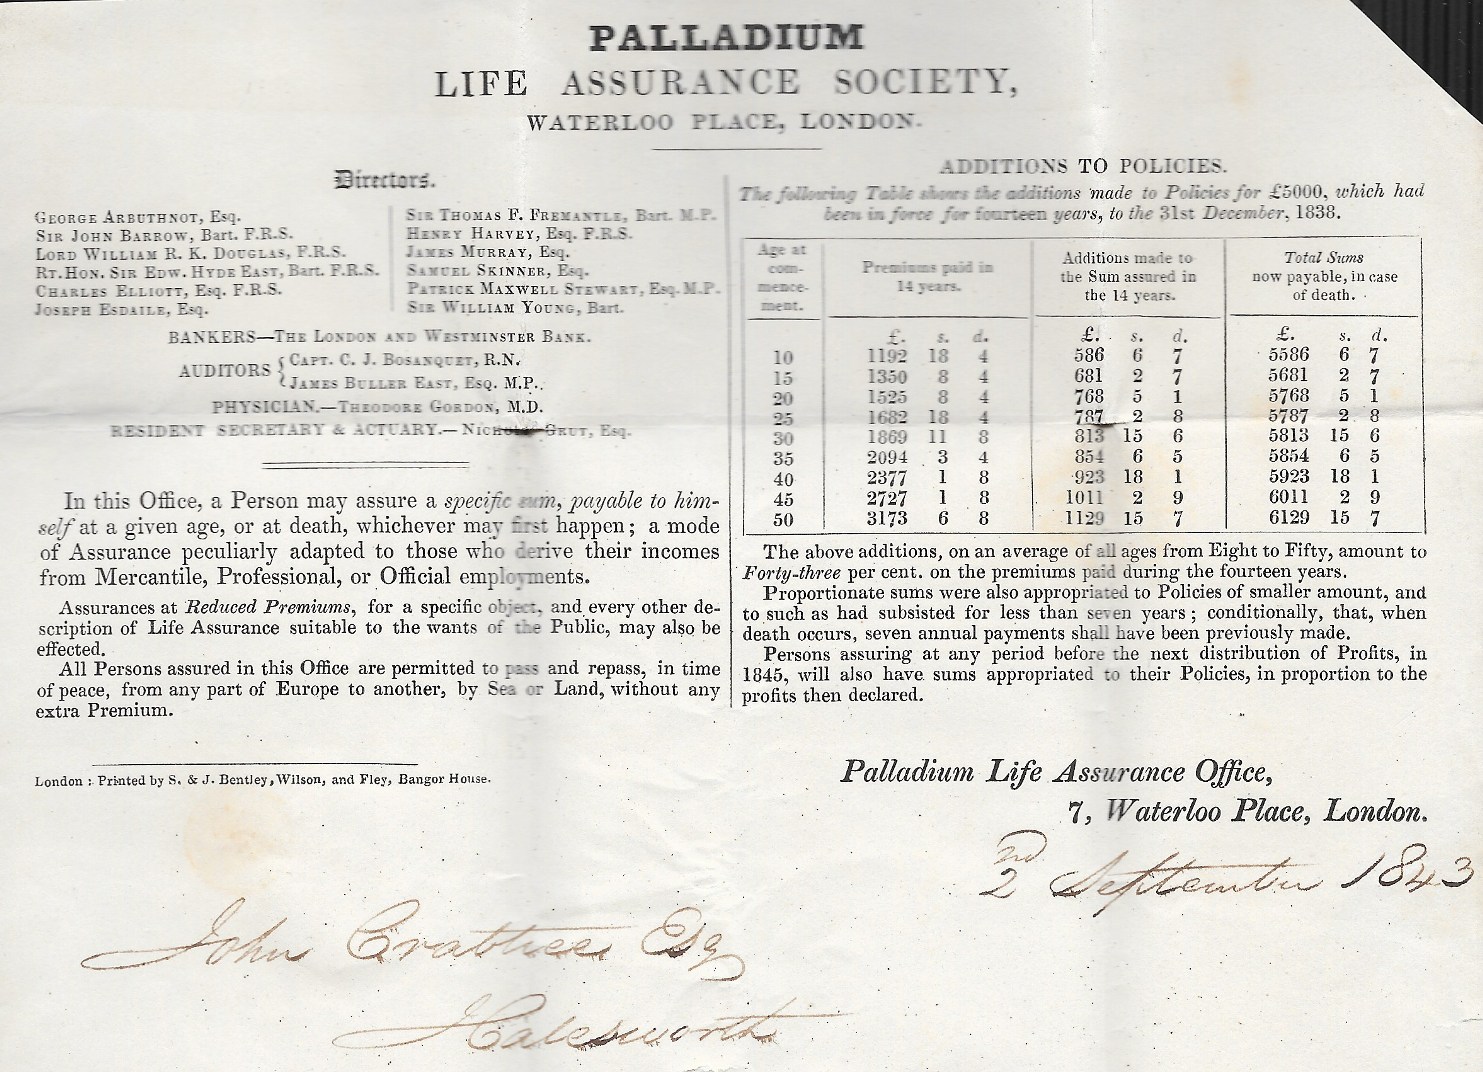 PALLADIUM
LIFE ASSURANCE SOCIETY,
WATERLOO PLACE, LONDON.
Directors.
GEORGE ARBUTHNOT, Esq.
SIR JOHN BARROW, Bart. F.R.S.
LORD WILLIAM R. K. DOUGLAS, F.R.S.
RT. HON. SIR EDW. HYDE EAST, Bart. F.R.S.
CHARLES ELLIOTT, Esq. F.R.S.
JOSEPH ESDAILE, Esq.
SIR THOMAS F. FREMANTLE, Bart. M.P.
HENRY HARVEY, Esq. F.R.S.
JAMES MURRAY, Esq.
SAMUEL SKINNER, Esq.
PATRICK MAXWELL STEWART, Esq. M.P.
SIR WILLIAM YOUNG, Bart.
BANKERS—THE LONDON AND WESTMINSTER BANK.
AUDITORS { CAPT. C. J. BOSANQUET, R.N.
JAMES BULLER EAST, Esq. M.P.
PHYSICIAN.—THEODORE GORDON, M.D.
RESIDENT SECRETARY & ACTUARY.— GRUT, Esq.
In this Office, a Person may assure a specific sum, payable to him-
self at a given age, or at death, whichever may first happen; a mode
of Assurance peculiarly adapted to those who derive their incomes
from Mercantile, Professional, or Official employments.
Assurances at Reduced Premiums, for a specific object, and every other de-
scription of Life Assurance suitable to the wants of the Public, may also be
effected.
All Persons assured in this Office are permitted to pass and repass, in time
of peace, from any part of Europe to another, by Sea or Land, without any
extra Premium.
London: Printed by S. & J. Bentley, Wilson, and Fley, Bangor House.
ADDITIONS TO POLICIES.
The following Table shows the additions made to Policies for £5000, which had
been in force for fourteen years, to the 31st December, 1838.
Age at com-mence-ment. Premiums paid in 14 years. Additions made to the Sum assured in the 14 years. Total Sums now payable, in case of death.
£. s. d. £. s. d. £. s. d.
10 1192 18 4 586 6 7 5586 6 7
15 1350 8 4 681 2 7 5681 2 7
20 1525 8 4 768 5 1 5768 5 1
25 1682 18 4 787 2 8 5787 2 8
30 1869 11 8 813 15 6 5813 15 6
35 2094 3 4 854 6 5 5854 6 5
40 2377 1 8 923 18 1 5923 18 1
45 2727 1 8 1011 2 9 6011 2 9
50 3173 6 8 1129 15 7 6129 15 7
The above additions, on an average of all ages from Eight to Fifty, amount to
Forty-three per cent. on the premiums paid during the fourteen years.
Proportionate sums were also appropriated to Policies of smaller amount, and
to such as had subsisted for less than seven years; conditionally, that, when
death occurs, seven annual payments shall have been previously made.
Persons assuring at any period before the next distribution of Profits, in
1845, will also have sums appropriated to their Policies, in proportion to the
profits then declared.
Palladium Life Assurance Office,
7, Waterloo Place, London.
2nd September 1843
John Crabtree Esq
Halesworth